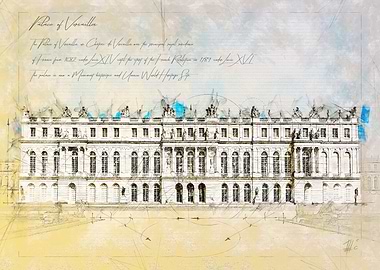 Palace of Versailles
The Palace of Versailles, or Château de Versailles, was the principal royal residence
of France from 1682, under Louis XIV, until the start of the French Revolution in 1789, under Louis XVI.
The palace is now a Monument historique and Unesco World Heritage Site